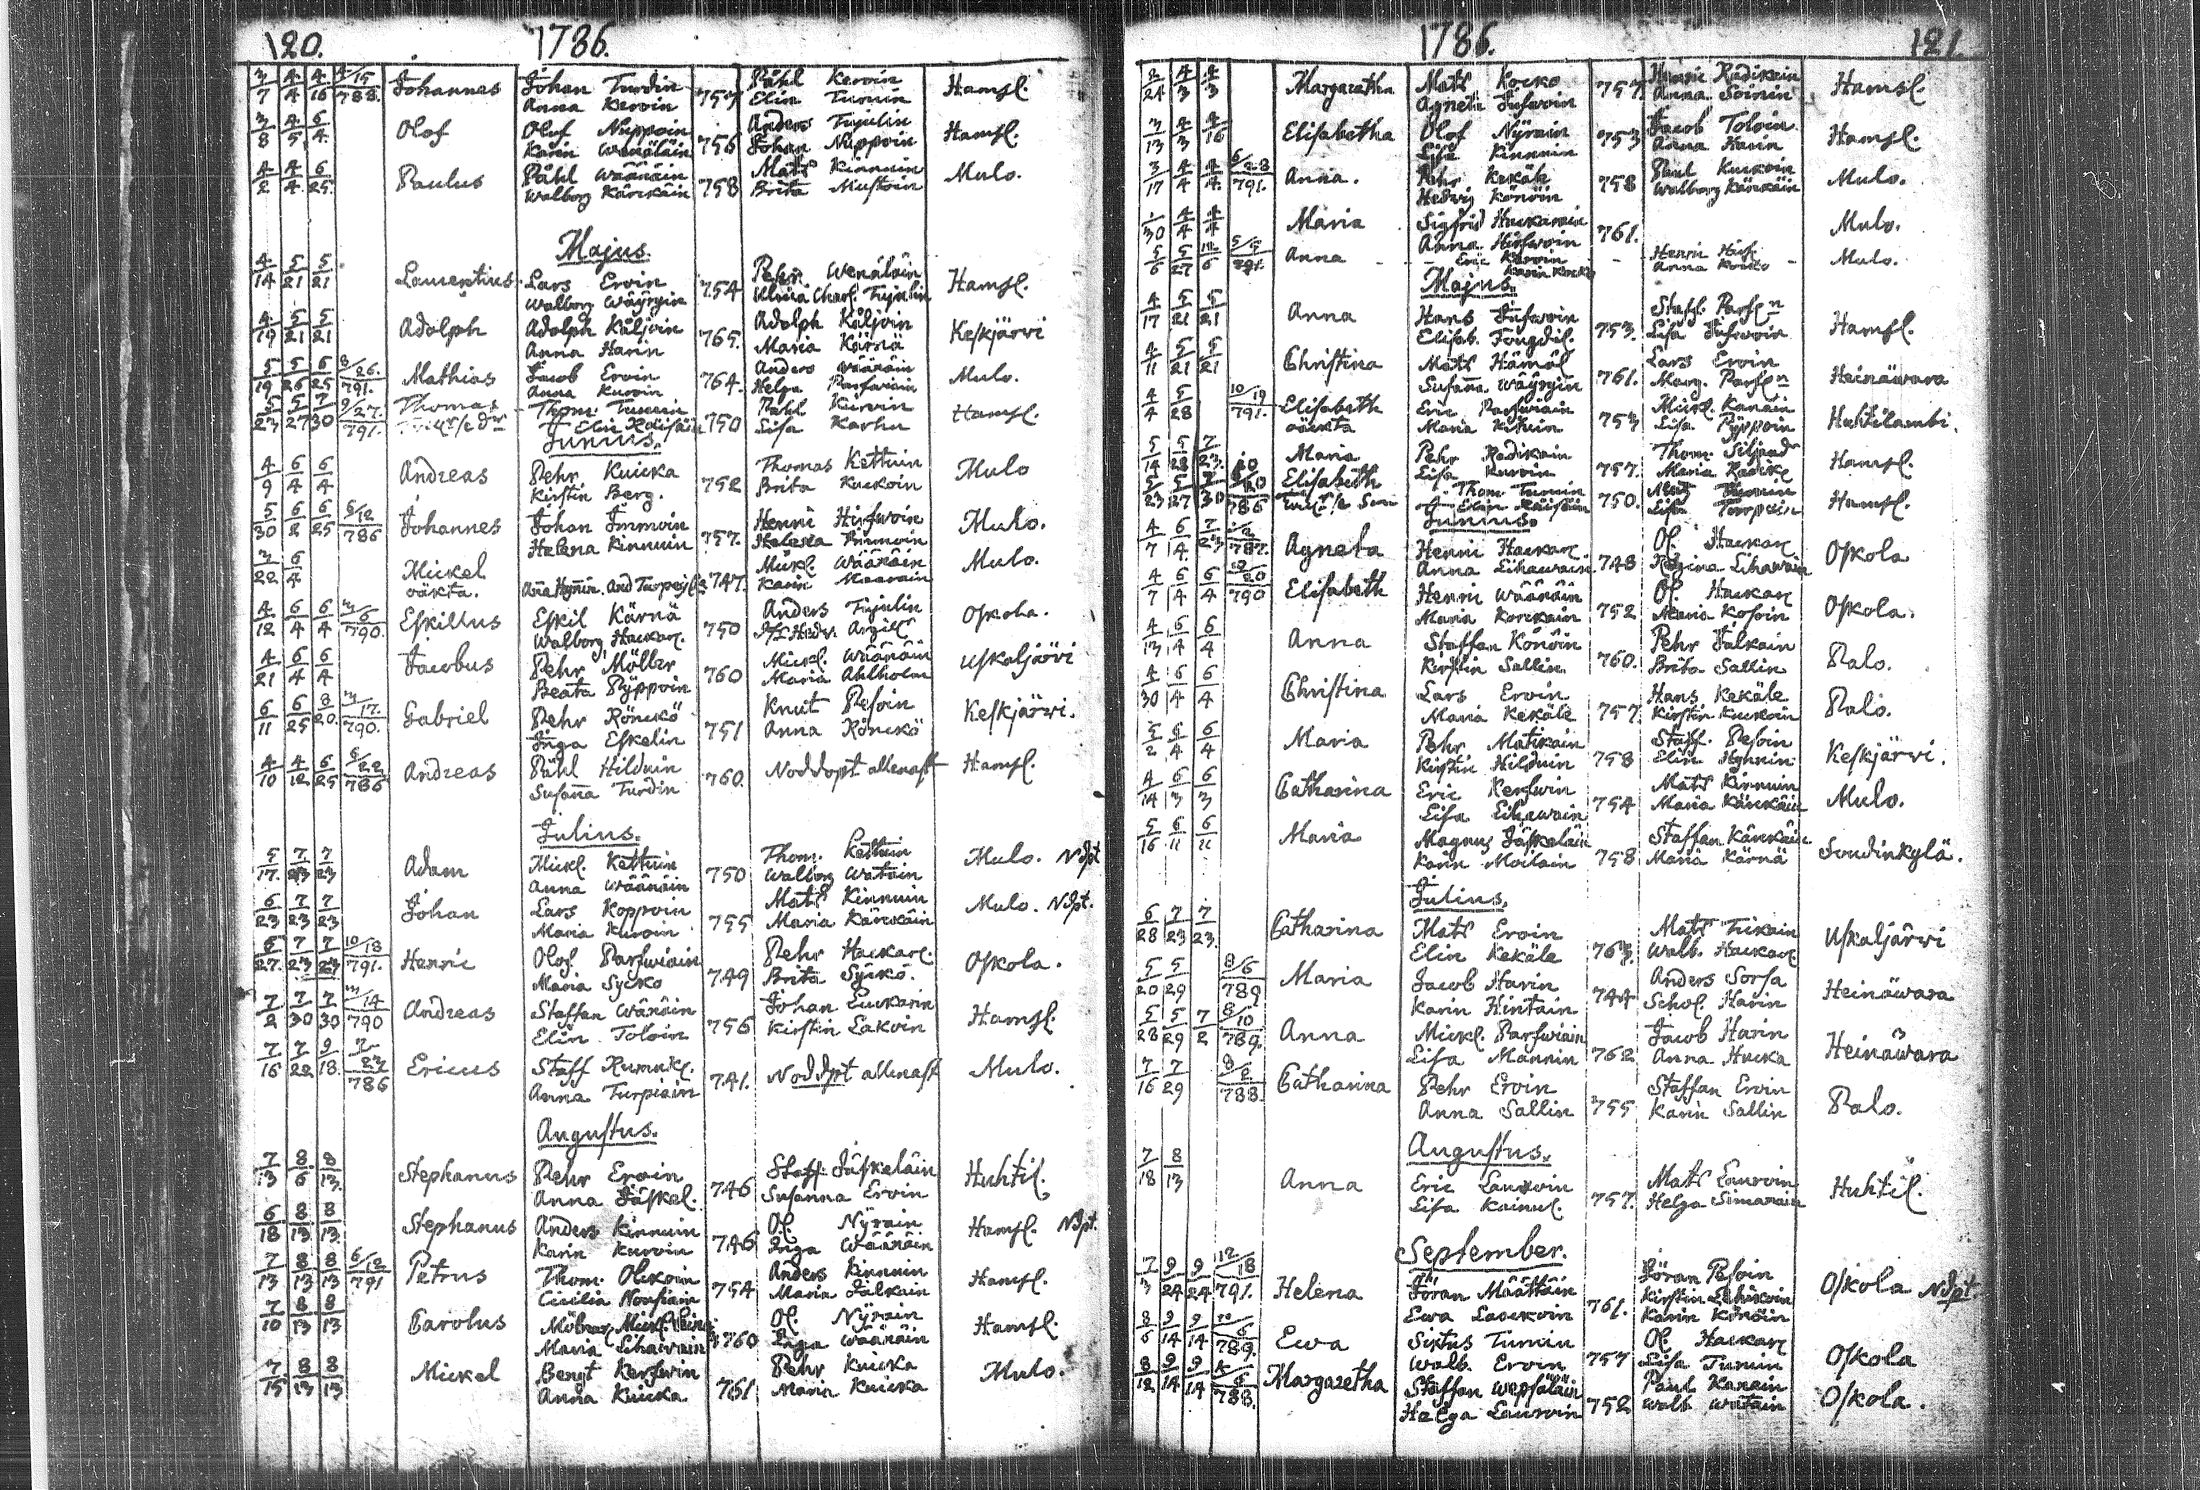 120. 1786.
3/7 4/4 4/16 4/15 788. Johannes Johan Turdin 757 Påhl Kervin Hamsl.
Anna Kervin Elin Turuin
3/8 4/5 6/4. Olof Oluf Nuppoin 756 Anders Tujulin Hamsl.
Karin Wenäläin Johan Nuppoin
4/2 4/4 6/25. Paulus Påhl Wäänäin 758 Matts Kinnuin Mulo.
Walborg Känckäin Brita Mustoin
Majus.
4/14 5/21 5/21 Laurentius. Lars Ervin 754 Pehr Wenäläin Hamsl.
Walborg Wäyryin Ulrica Charl. Tujulin
4/19 5/21 5/21 Adolph Adolph Käljoin 765. Adolph Käljoin Keskjärvi
Anna Harin Maria Kärnä
5/19 5/26 6/25 8/26. 791. Mathias Jacob Ervin 764. Anders Wäänäin Mulo.
Anna Kurvin Helga Parfwiain
5/23 5/27 7/30 9/27. 791. Thomas Thom. Turuin 750 Påhl Kurvin Hamsl.
Elin Räisäin Lisa Karhu
Junius.
4/9 6/4 6/4 Andreas Pehr Kuicka 752 Thomas Kettuin Mulo
Kirstin Berg. Brita Kuckoin
5/30 6/2 6/25 8/12 786 Johannes Johan Immoin 757. Henric Hirfwoin Mulo.
Helena Kinnuin Helena Immoin
3/22 6/4 Mickel Mickl. Wäänäin Mulo.
oäkta. Aña Hynin. And Turpeis 747. Karin
4/12 6/4 6/4 11/6 790. Eskillus Eskil Kärnä 750 Anders Tujulin Oskola.
Walborg Hackarl. Hedv. Argill
4/21 6/4 6/4 Jacobus Pehr Möller 760 Mickl. Wäänäin Uskaljärvi
Beata Pyppoin Maria Ahlholm
6/11 6/25 8/20. 11/17. 790. Gabriel Pehr Rönckö 751 Knut Pesoin Keskjärvi.
Inga Eskelin Anna Rönckö
4/10 4/12 6/25 8/22 786 Andreas Påhl Hilduin 760. Noddopt allenast Hamsl.
Susaña Turdin
Julius.
5/17. 7/23 7/23 Adam Mickl. Kettuin 750 Thom. Kettuin Mulo. Ndpt
Anna Wäänäin Walborg Watain
6/23 7/23 7/23 Johan Lars Koppoin 755 Matts Kinnuin Mulo. Ndpt.
Maria Kurvin Maria Känckäin
6/27. 7/23 7/23 10/18 791. Henric Olof Parfwiain 749 Pehr Hackarl. Oskola.
Maria Sycko Brita Syckö.
7/2 7/30 7/30 11/14 790 Andreas Staffan Wänäin 756 Johan Luckarin Hamsl.
Elin Toloin Kirstin Lakoin
7/16 7/22 9/18. 7/23 786 Ericus Staff Rumukl. 741. Noddpt allenast Mulo.
Anna Turpiain
Augustus.
7/13 8/6 8/13. Stephanus Pehr Ervin 746 Staff. Jäskeläin Huhtil.
Anna Jäskel. Susanna Ervin
6/18 8/13 8/13. Stephanus Anders Kinnuin 746 Ol. Nyrain Hamsl. Ndpt.
Karin Kurvin Inga Wäänäin
7/13 8/13 8/13 6/12 791 Petrus Thom. Olickoin 754 Anders Kinnuin Hamsl.
Cicilia Nousiain Maria Jalkain
7/10 8/13 8/13 Carolus 760 Ol. Nyrain Hamsl.
Maria Lihawain Inga Wäänäin
7/15 8/13 8/13 Mickel Bengt Kerfwin 761 Pehr Kuicka Mulo.
Anna Kuicka Maria Kuicka
1786. 121.
2/24 4/3 4/3 Margaretha Matts Kocko 757. Henric Rädikain Hamsl.
Agneta Sufwoin Anna Soinin
3/13 4/3 4/16 Elisabetha Olof Nyrain 753 Jacob Toloin. Hamsl.
Lisa Kinnuin Anna Hann
3/17 4/4 4/4. 6/28 791. Anna. Pehr Kekäle 758 Paul Kuckoin Mulo.
Hedvig Könöin Walborg Känckäin
1/30 4/4 4/4 Maria Sigfrid Hackarain 761. Mulo.
Anna Hirfwoin
5/6 5/27 12/6 5/5 791. Anna Eric Kervin Henric Hirf Mulo.
Karin Kocko Anna Kocko
Majus.
4/17 5/21 5/21 Anna Hans Sufwoin 753. Staff. Parfsn Hamsl.
Elisab. Fougdil. Lisa Sufwoin
4/11 5/21 5/21 Christina Matts Hämäl 761. Lars Ervin Heinäwara
Susaña Wäyryin Marg. Parfsn
4/4 5/28 10/19 791. Elisabeth Eric Parfwiain 753 Mickl. Kanain Huhtilambi.
oäckta Maria Kituin Lisa Pyppoin
5/14 5/28 7/23. Maria Pehr Rädikain 757. Thom. Siljand Hamsl.
Lisa Kurvin Maria Rädick
5/23 5/27 7/30 8/20 786 Elisabeth Thom Turuin 750. Hamsl.
Elin Räisäin Lisa
Junius.
4/7 6/4 7/23 787. Agneta Henric Hackarl. 748 Ol. Hackarl Oskola
Anna Lihawain Regina Lihawain
4/7 6/4 6/4 12/20 790 Elisabeth Henric Wäänäin 752 Ol. Hackarl Oskola.
Maria Korckain Maria Kosoin
4/13 6/4 6/4 Anna Staffan Könöin 760. Pehr Jalkain Palo.
Kirstin Sallin Brita Sallin
4/30 6/4 6/4 Christina Lars Ervin 757 Hans Kekäle Palo.
Maria Kekäle Kirstin Kuckoin
5/2 6/4 6/4 Maria Pehr Matikain 758 Staff. Pesoin Keskjärvi.
Kirstin Hilduin Elin Hynnin
4/14 6/3 6/3 Catharina Eric Kerfwin 754 Matts Kinnuin Mulo.
Lisa Lihawain Maria Känckäin
5/16 6/11 6/11 Maria Magnus Jäskeläin 758 Staffan Känckäin Soudinkylä.
Karin Moilain Maria Kärnä
Julius.
6/28 7/23 7/23. Catharina Matts Ervin 763. Matts Tiikain Uskaljärvi
Elin Kekäle Walb. Hackarl
5/20 5/29 8/6 789 Maria Jacob Harin 744 Anders Sorsa Heinäwara
Karin Hintain Schol. Harin
5/28 5/29 7/2 8/10 789. Anna Mickl. Parfwiain 762 Jacob Harin Heinäwara
Lisa Männin Anna Hucka
7/16 7/29 8/2 788. Catharina Pehr Ervin 755 Staffan Ervin Palo.
Anna Sallin Karin Sallin
Augustus.
7/18 8/13 Anna Eric Lauroin 757. Matts Lauroin Huhtil.
Lisa Kainul. Helga Simanain
September.
7/3 9/24 9/24 12/18 791. Helena Jöran Määttäin 761. Jöran Pesoin Oskola Ndpt.
Ewa Lauckoin Kirstin Lehikoin
Karin Könöin
8/6 9/14 9/14 10/6 789. Ewa Sixtus Turuin 757 Ol. Hackarl Oskola
Walb. Ervin Lisa Turuin
8/12 9/14 9/14 4/6 788. Margaretha Staffan Wepsäläin 752 Paul Kanain Oskola.
Helga Lauroin Walb. Watain